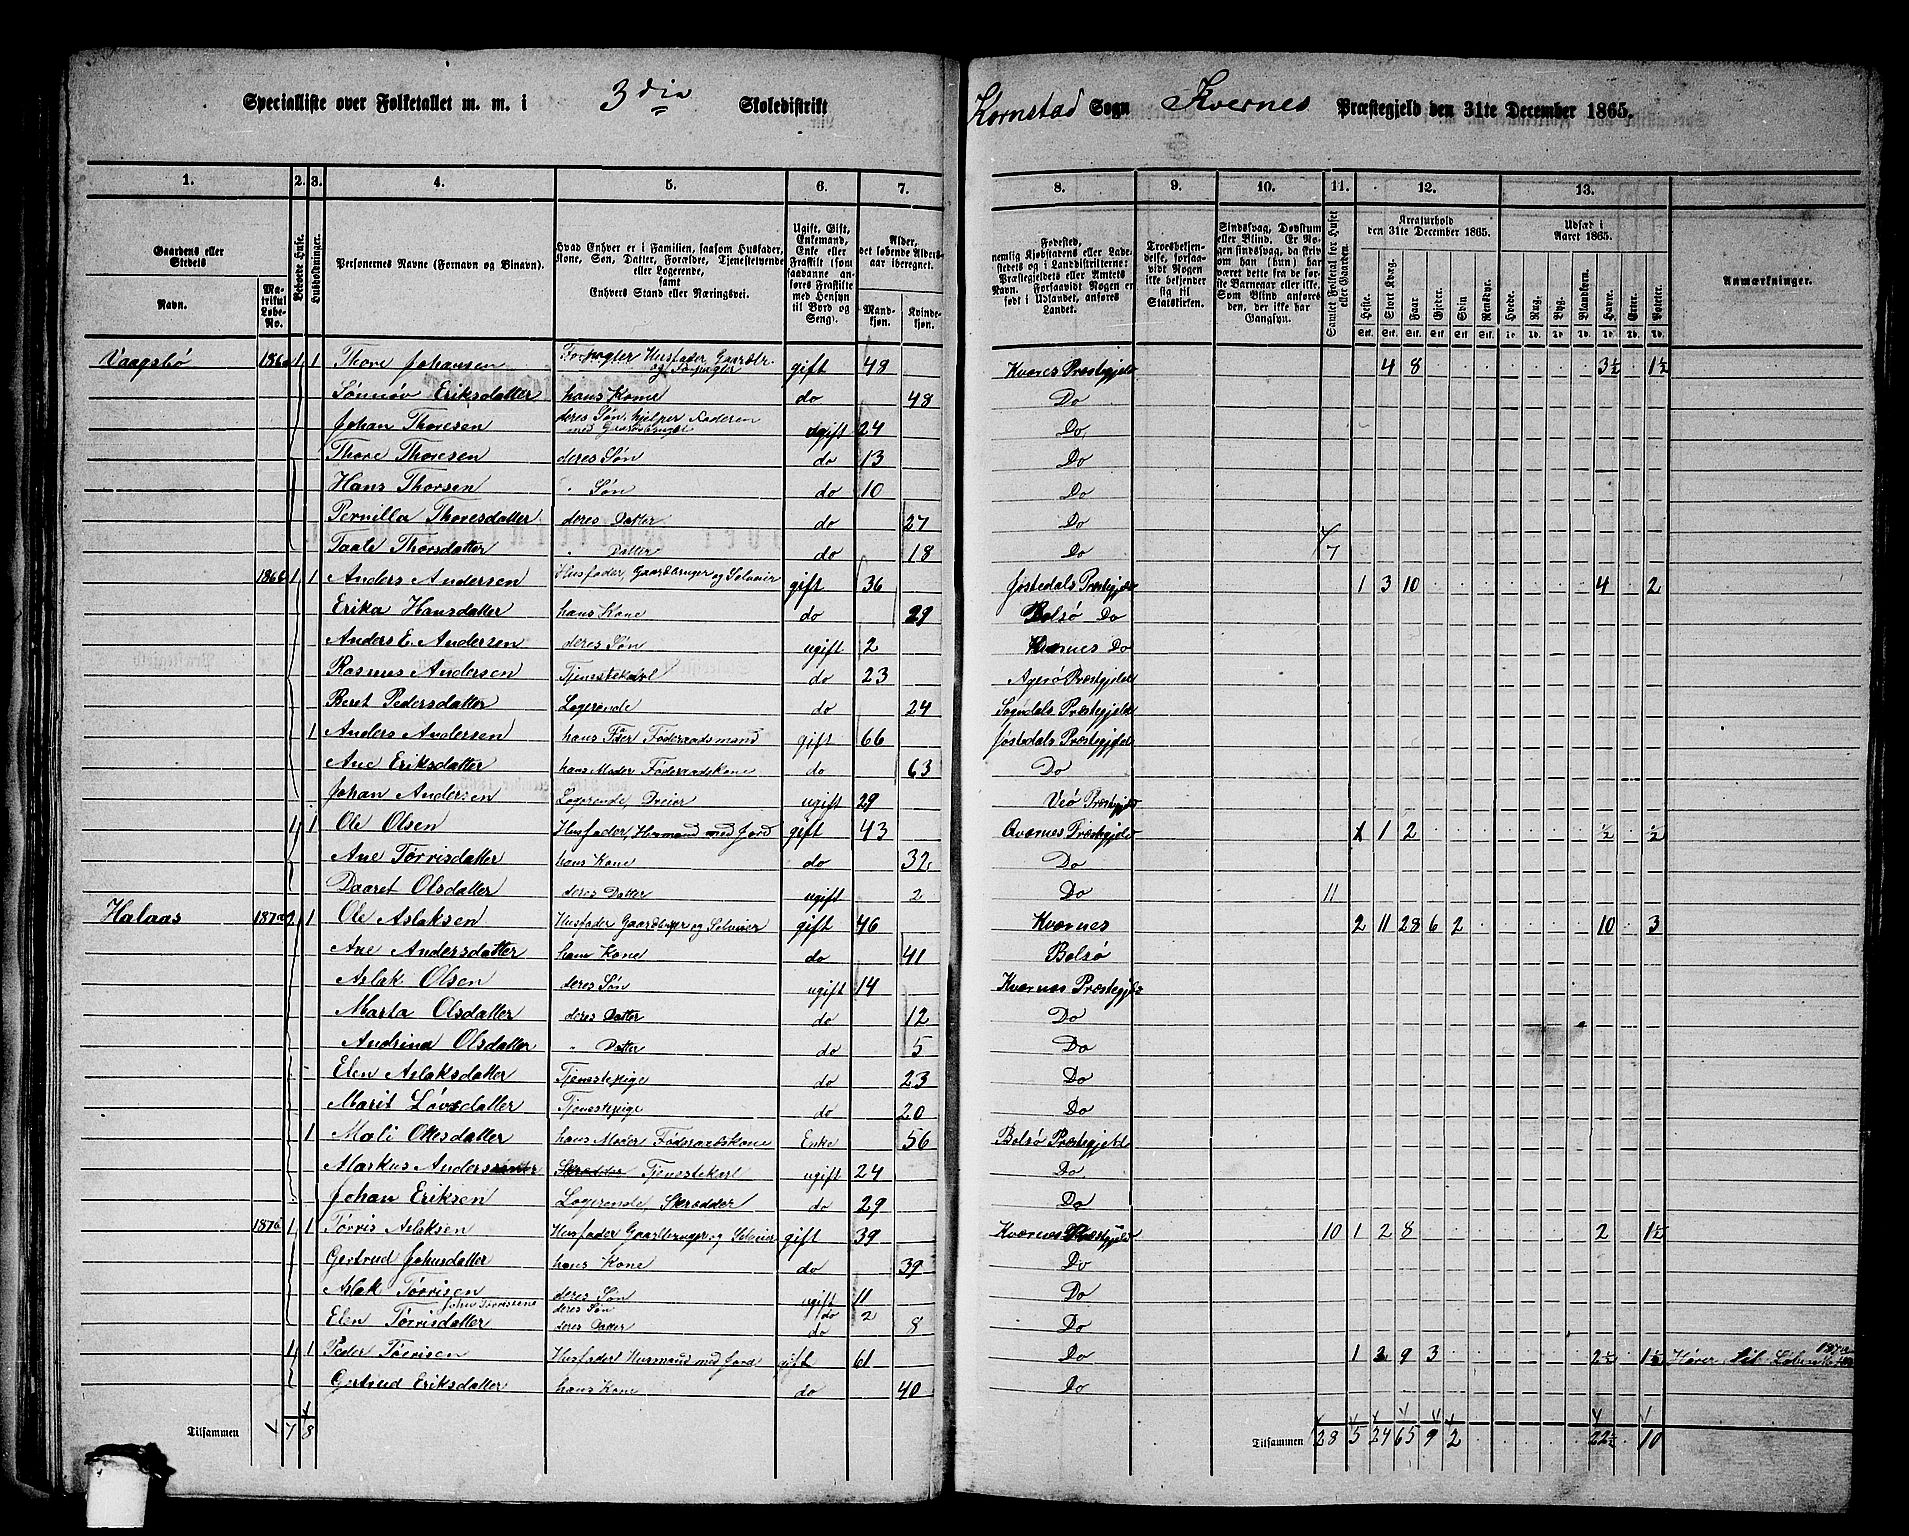 Specialliste over Folketallet m. m. i 3die Skoledistrikt Kornstad Sogn Kvernes Præstegjeld den 31te December 1865.
1. 2. 3. 4. 5. 6. 7. 8. 9. 10. 11. 12. 13.
Gaardens eller Stedets
Navn.
Matrikul Løbe-No.
Beboede Huse.
Husholdninger.
Personernes Navne (Fornavn og Binavn).
Hvad Enhver er i Familien, saasom Husfader, Kone, Søn, Datter, Forældre, Tjenestetyende eller Logerende, samt Enhvers Stand eller Næringsvei.
Ugift, Gift, Enkemand, Enke eller Fraskilt
Alder, det løbende Alders-aar iberegnet.
Mand-kjøn.
Kvinde-kjøn.
Fødested,
Samlet Folketal for Huset eller Gaarden.
Kreaturhold den 31te December 1865.
Heste. Stort Kvæg. Faar. Gjeter. Svin. Rensdyr.
Udsæd i Aaret 1865.
Hvede. Rug. Byg. Blandkorn. Havre. Erter. Poteter.
Anmærkninger.
Vaagsbø 1 1 Thore Johansen gift 48 4 8 3½ 1½
Sønnøv Eriksdatter hans Kone do 48 Do
Johan Thoresen deres Søn, hjelper Faderen med Gaardsbruget ugift 24 Do
Thore Thoresen deres Søn do 13 Do
Hans Thorsen " Søn do 10 Do
Pernilla Thoresdatter deres Datter do 27 Do
Thorsdatter " Datter do 18 Do 7
1 1 Anders Andersen Husfader, Gaardbruger og Selveier gift 36 Jostedals Præstegjeld 1 3 10 4 2
Erika Hansdatter hans Kone do 29 Bolsø Do
Anders E. Andersen deres Søn ugift 2 Kværnes Do
Rasmus Andersen Tjenestekarl do 23 Agerø Præstegjeld
Beret Pedersdatter Logerende do 24 Sogndals Præstegjeld
1 Anders Andersen hans Fader Føderaadsmand gift 66 Jostedals Præstegjeld
Ane Eriksdatter hans Moder Føderaadskone do 63 Do
Johan Andersen Logerende, Dreier ugift 29 Veø Præstegjeld
1 1 Ole Olsen Husfader, Husmand med Jord gift 43 Qværnes Præstegjeld 1 2 ½ ½
Ane Tørrisdatter hans Kone do 32 Do
Daaret Olsdatter deres Datter ugift 2 Do 11
Halaas 1 Ole Aslaksen Husfader Gaardbruger og Selveier gift 46 Kværnes 2 11 28 6 2 10 3
Ane Andersdatter hans Kone do 41 Bolsø
Aslak Olsen deres Søn ugift 14 Kværnes Præstegjeld
Marta Olsdatter deres Datter do 12 Do
Andrina Olsdatter " Datter do 5 Do
Elen Aslaksdatter Tjenestepige do 23 Do
Marit Datter Tjenestepige do 20 Do
1 Mali Ottesdatter hans Moder Føderaadskone Enke 56 Bolsø Præstegjeld
Markus Andersen Tjenestekarl ugift 24 Do
Johan Eriksen Logerende, Skrædder do 29 Do
1 1 Tørris Aslaksen Husfader Gaardbruger og Selveier gift 39 Kværnes Præstegjeld 10 1 2 8 2 1½
Gertrud Johnsdatter hans Kone do 39 Do
Aslak Tørrisen deres Søn ugift 11 Do
John Tørrissen deres Søn do 2
Elen Tørrisdatter deres Datter do 8 Do
1 1 Peder Tørrisen Husfader Husmand med Jord gift 61 Do 1 9 3 2½ 1½
Gertrud Eriksdatter hans Kone do 40 Do
Tilsammen 7 8 Tilsammen 28 5 24 65 9 2 22½ 10